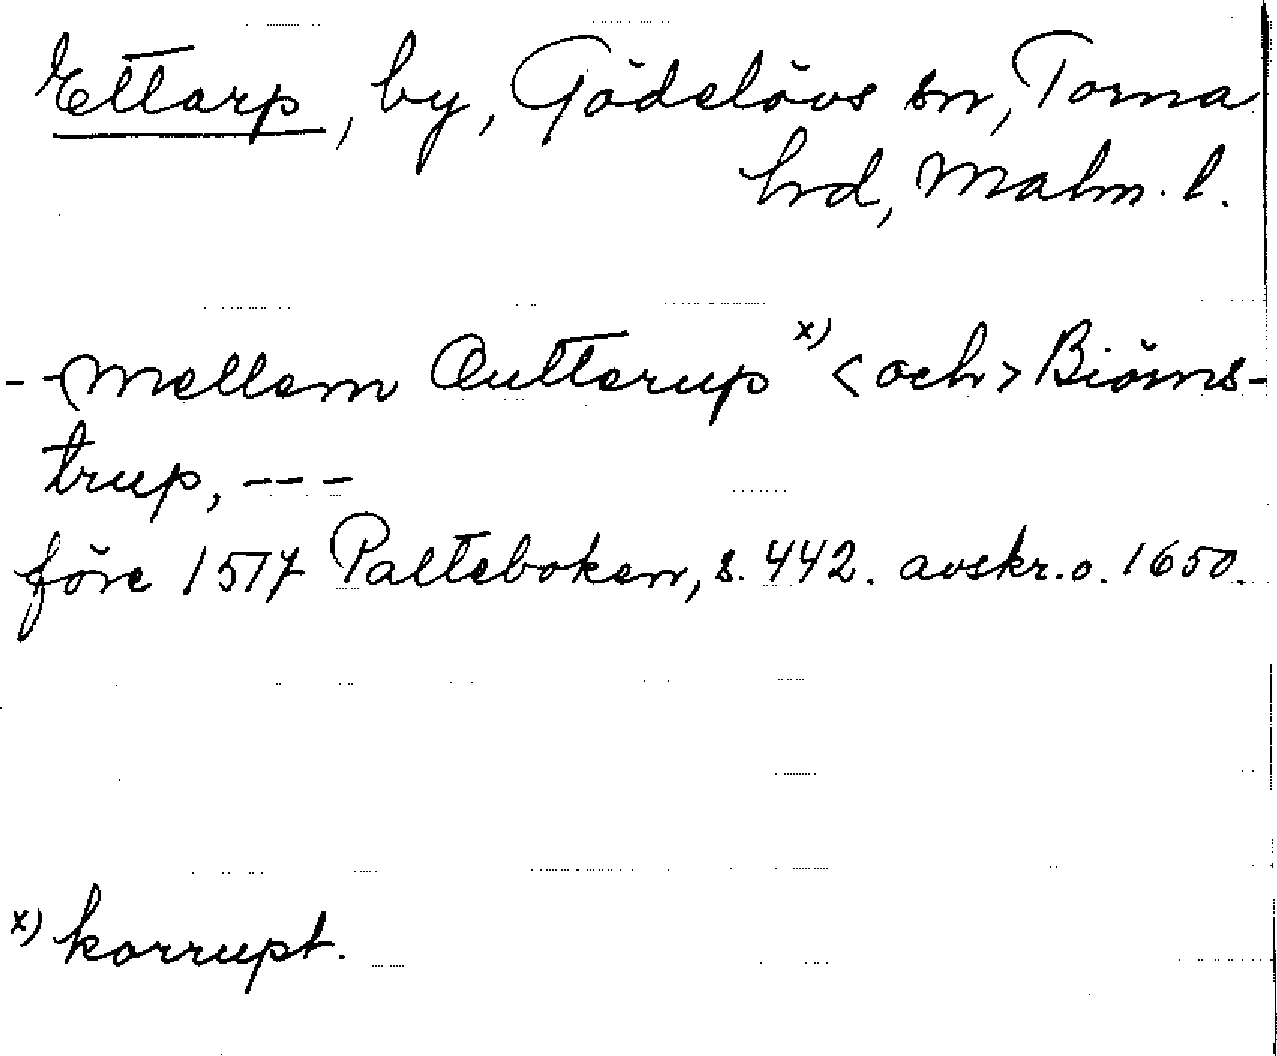 Ettarp, by, Gödelövs sn, Torna
hrd, Malm. l.
- - mellem Outterup x) <och> Biörns-
trup, - - -
före 1517 Palteboken, s. 442. avskr. o. 1650.
x) korrupt.